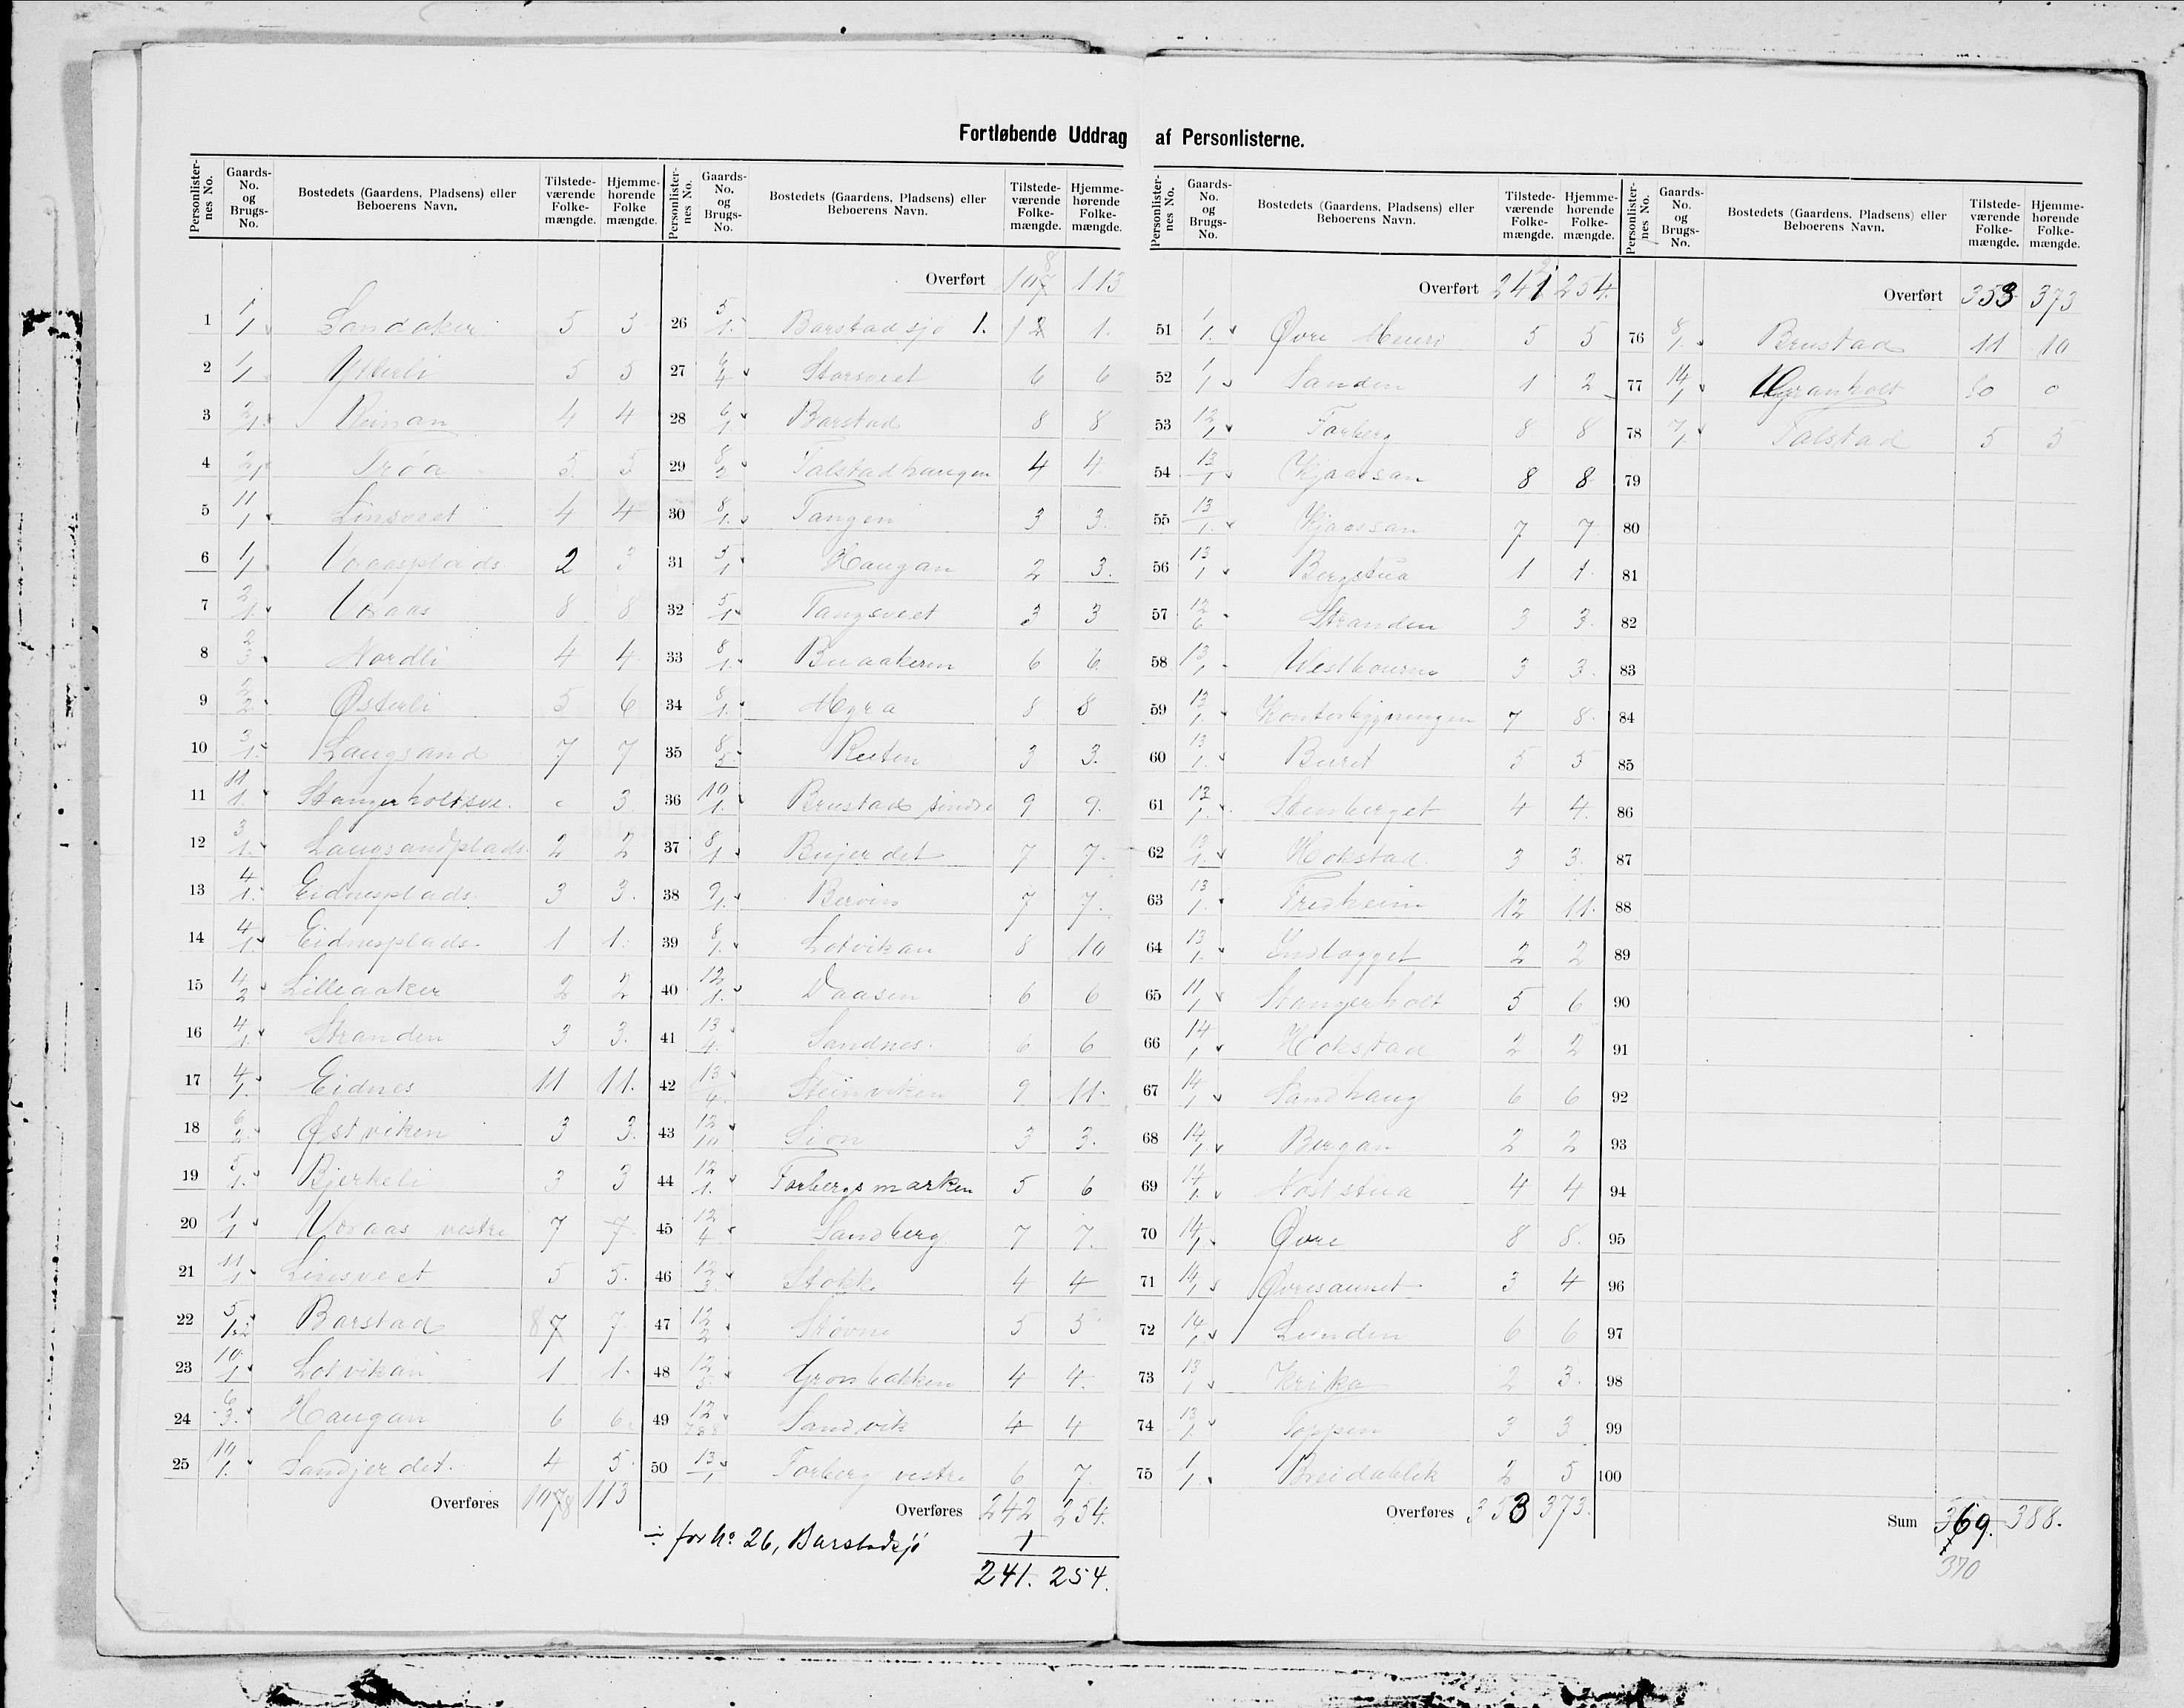 Fortløbende Uddrag af Personlisterne.
Personlisternes No. Gaards-No. og Brugs-No. Bostedets (Gaardens, Pladsens) eller Beboerens Navn. Tilstedeværende Folkemængde. Hjemmehørende Folkemængde.
1 1/1 Landaker 5 5
2 1/1 Ytterli 5 5
3 2/1 Reinan 4 4
4 2/1 Trøa 5 5
5 11/1 Linsveet 4 4
6 1/1 Voraasplads 2 3
7 2/1 Voraas 8 8
8 2/3 Nordli 4 4
9 2/2 Østerli 5 6
10 3/1 Langsand 7 7
11 11/1 Stangerholtsve. 3
12 3/1 Langsandplads 2 2
13 4/1 Eidnesplads 3 3.
14 4/1 Eidnesplads 1 1.
15 4/2 Lilleaaker 2 2
16 4/1 Stranden 3 3.
17 4/1 Eidnes 11 11.
18 6/2 Østviken 3 3.
19 5/1 Bjerkeli 3 3
20 1/1 Voraas vestre 7 7
21 11/1 Linsveet 5 5.
22 Barstad 8 7 7
23 10/1 Lotvikan 1 1.
24 6/3 Haugan 6 6.
25 10/1 Sandjerdet. 4 5.
Overføres 1078 113
Personlisternes No. Gaards-No. og Brugs-No. Bostedets (Gaardens, Pladsens) eller Beboerens Navn. Tilstedeværende Folkemængde. Hjemmehørende Folkemængde.
Overført 107 8 113
26 5/1 Barstadsjø 1. 12 1.
27 6/4 Storsveet 6 6
28 6/1 Barstad 8 8
29 8/2 Talstadhaugen 4 4
30 8/1 Tangen 3 3.
31 5/1 Haugan 2 3.
32 5/1 Tangsveet 3 3
33 8/1 Buaakeren 6 6
34 8/1 Myra 8 8
35 Reiten 3 3.
36 10/1 Brustad søndre 9 9.
37 8/1 Bujerdet 7 7.
38 9/1 Bervin 7 7.
39 8/1 Lotvikan 8 10
40 12/1 Daasen 6 6
41 13/4 Sandnes. 6 6
42 13/4 Steinviken 9 11.
43 12/10 Sion 3 3.
44 12/1 Forbergsmarken 5 6
45 12/4 Sandberg 7 7.
46 12/3 Stokke 4 4
47 12/2 Støvne 5 5
48 12/3 Grønbakken 4 4.
49 12/788 Sandvik 4 4
50 13/1 Forberg vestre 6 7
Overføres 242 254.
÷ for No 26, Barstadsjø 1
241. 254.
Personlisternes No. Gaards-No. og Brugs-No. Bostedets (Gaardens, Pladsens) eller Beboerens Navn. Tilstedeværende Folkemængde. Hjemmehørende Folkemængde.
Overført 241 2 254.
51 1/1 Øvre 5 5
52 1/1 Sanden 1 2
53 12/1 Forberg 8 8
54 13/1 Kjaasan 8 8
55 13/1 Kjaassan 7 7
56 13/1 Bergstua 1 1.
57 12/6 Stranden 3 3.
58 13/1 Westbourne 3 3.
59 13/1 Kontorbygningen 7 8.
60 13/1 Buret 5 5
61 13/1 Stenberget 4 4.
62 13/1 Hokstad. 3 3.
63 13/1 Fredheim 12 11.
64 13/1 Indlagget 2 2
65 11/1 Stangerholt 5 6
66 14/1 Hokstad 2 2
67 14/1 Sandhaug 6 6
68 14/1 Bergan 2 2
69 14/1 Noststua 4 4
70 14/1 Øvre 8 8.
71 14/1 Øvresaunet 3 4
72 14/1 Lunden 6 6
73 13/1 Krika 2 3.
74 13/1 Toppen 3 3
75 1/1 Breidablik 2 5
Overføres 353 373.
Personlisternes No. Gaards-No. og Brugs-No. Bostedets (Gaardens, Pladsens) eller Beboerens Navn. Tilstedeværende Folkemængde. Hjemmehørende Folkemængde.
Overført 353 373
76 8/1 Brustad 11 10
77 14/1 Granholt 0 0
78 7/1 Talstad 5 5
79
80
81
82
83
84
85
86
87
88
89
90
91
92
93
94
95
96
97
98
99
100
Sum 369. 388.
370